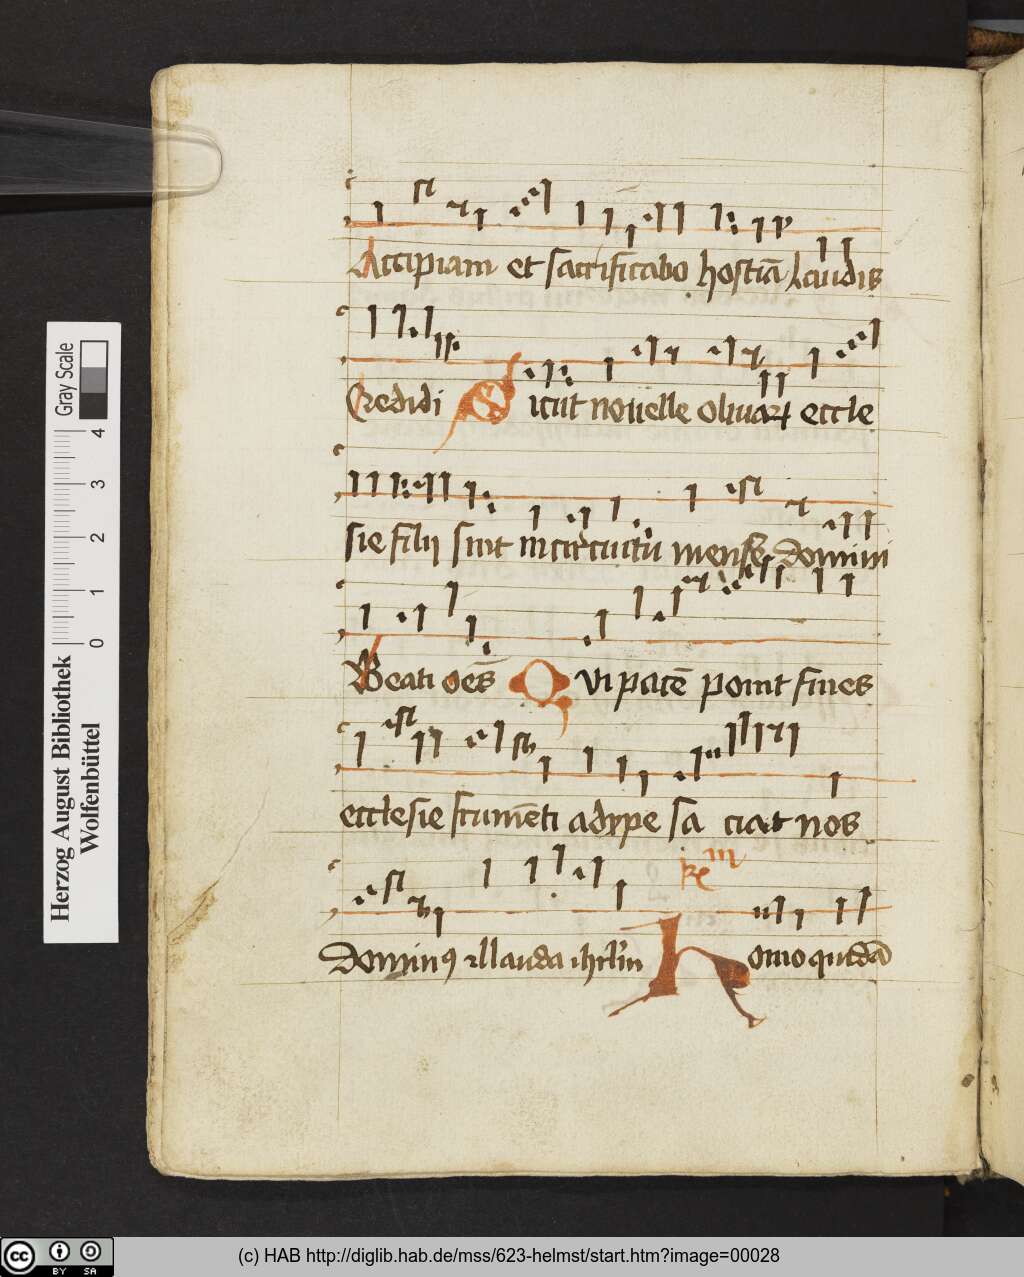 Accipiam et sacrificabo hostiā laudis
Credidi Sicut nouelle oliuaꝝ eccle
sie filij sint in circuitu mense domini
Beati oēs Qui pacē ponit fines
ecclesie frumēti adype sa ciat nos
Rem
Dominus Lauda ihrlm Homo quidā
Herzog August Bibliothek
Wolfenbüttel
0 1 2 3 4
Gray Scale
cc BY SA
(c) HAB http://diglib.hab.de/mss/623-helmst/start.htm?image=00028